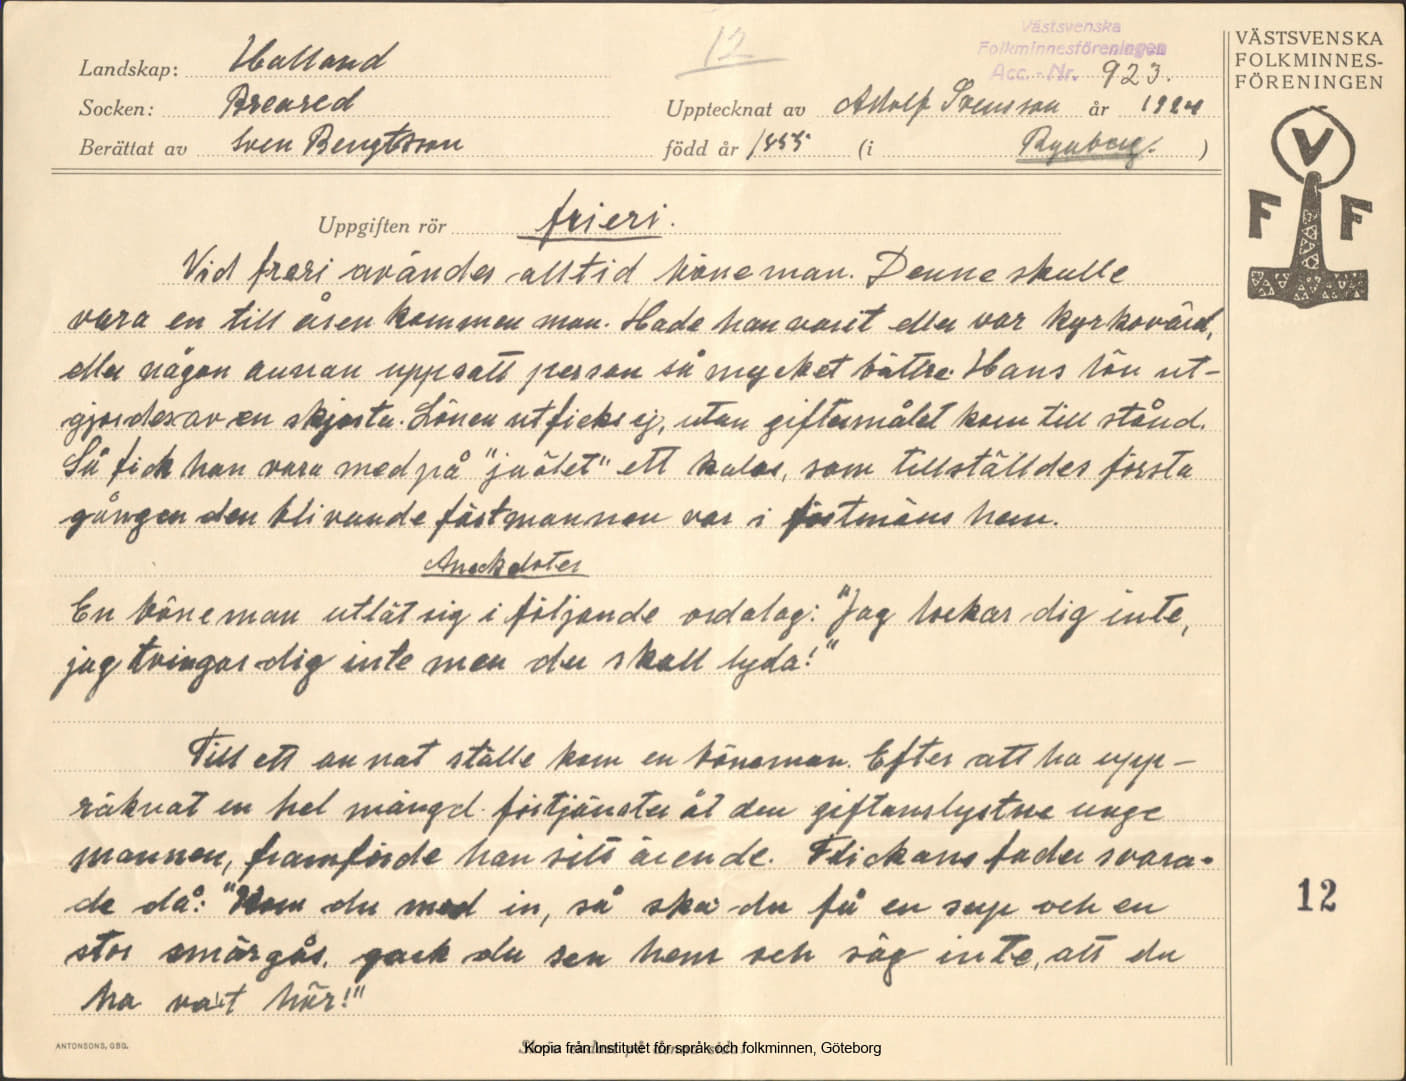 12
Västsvenska
Folkminnesföreningen
Acc. - Nr. 923.
VÄSTSVENSKA
FOLKMINNES-
FÖRENINGEN
V
F F
Landskap: Halland
Socken: Breared
Upptecknat av Adolf Svensson år 1924
Berättat av Sven Bengtsson
född år 1855 (i Ryaberg. )
Uppgiften rör frieri.
Vid freri användes alltid böneman. Denne skulle
vara en till åren kommen man. Hade han varit eller var kyrkovärd,
eller någon annan uppsatt person så mycket bättre. Hans lön ut-
gjordes av en skjorta. Lönen utficks ej, utan giftermålet kom till stånd.
Så fick han vara med på "jaölet" ett kalas, som tillställdes första
gången den blivande fästmannen var i fästmöns hem.
Anekdoter
En böneman utlät sig i följande ordalag: "Jag lockar dig inte,
jag tvingar dig inte men du skall lyda!"
Till ett annat ställe kom en böneman. Efter att ha upp-
räknat en hel mängd förtjänster åt den giftaslystne unge
mannen, framförde han sitt ärende. Flickans fader svara-
de då: "Kom du med in, så ska du få en sup och en
stor smörgås, gack du sen hem och säg inte, att du
ha vat här!"
12
ANTONSONS, GBG.
Kopia från Institutet för språk och folkminnen, Göteborg